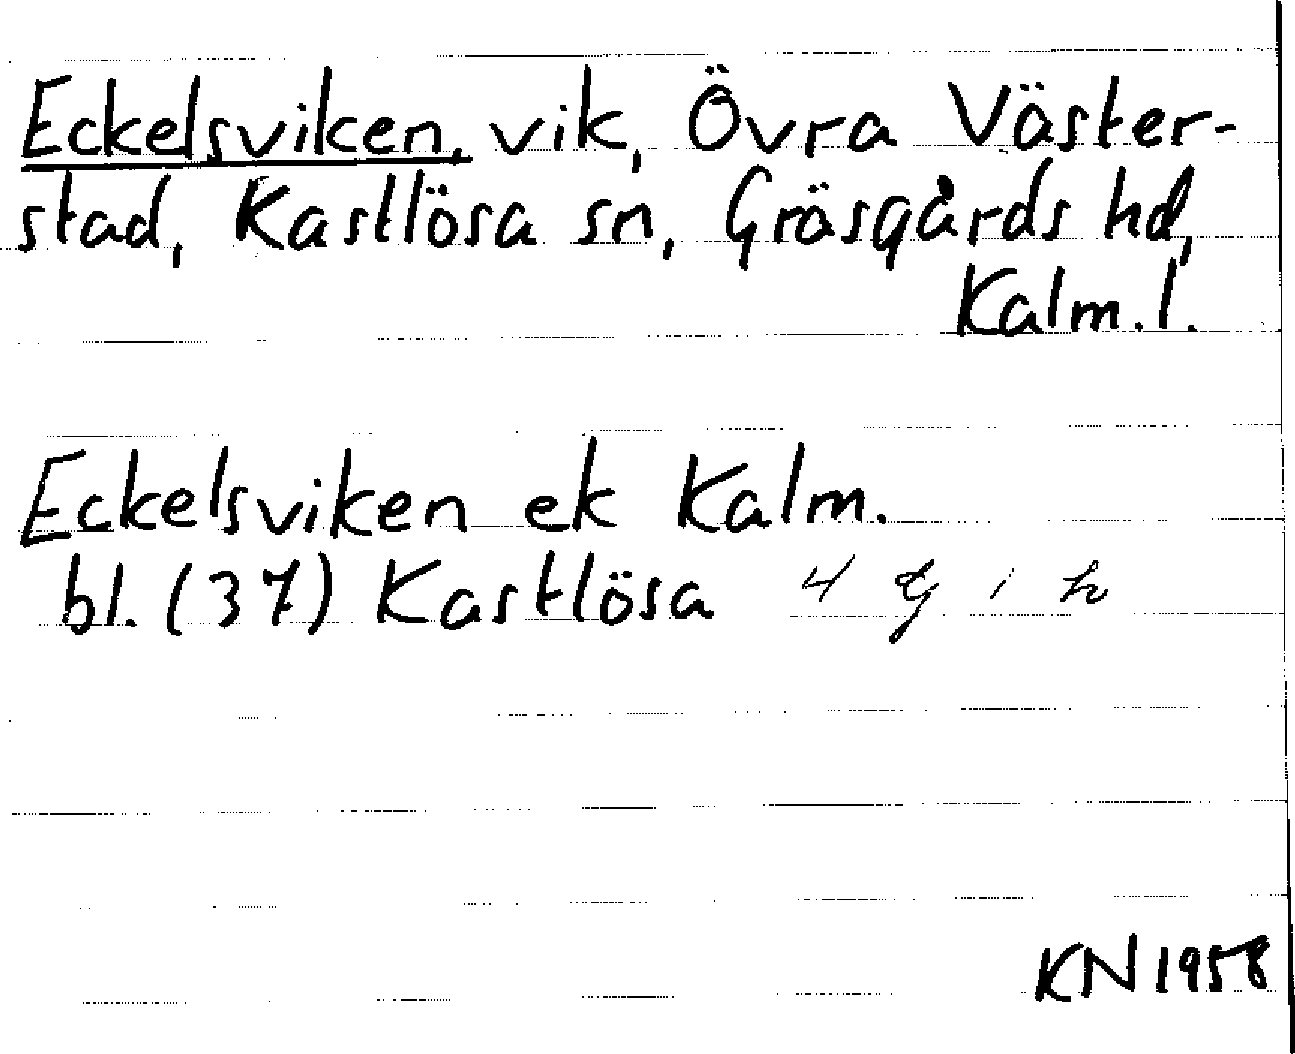 Eckelsviken, vik, Övra Väster-
stad, Kastlösa sn, Gräsgårds hd,
Kalm. l.
Eckelsviken ek Kalm.
bl. (37) Kastlösa 4 g i h
KN 1958